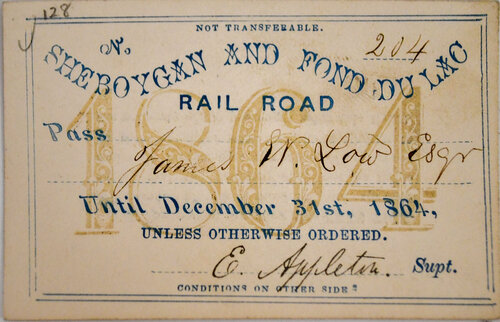 128
NOT TRANSFERABLE.
N. 204
SHEBOYGAN AND FOND DU LAC
RAIL ROAD
1864
Pass
James W. Low Esqr
Until December 31st, 1864,
UNLESS OTHERWISE ORDERED.
E. Appleton. Supt.
CONDITIONS ON OTHER SIDE